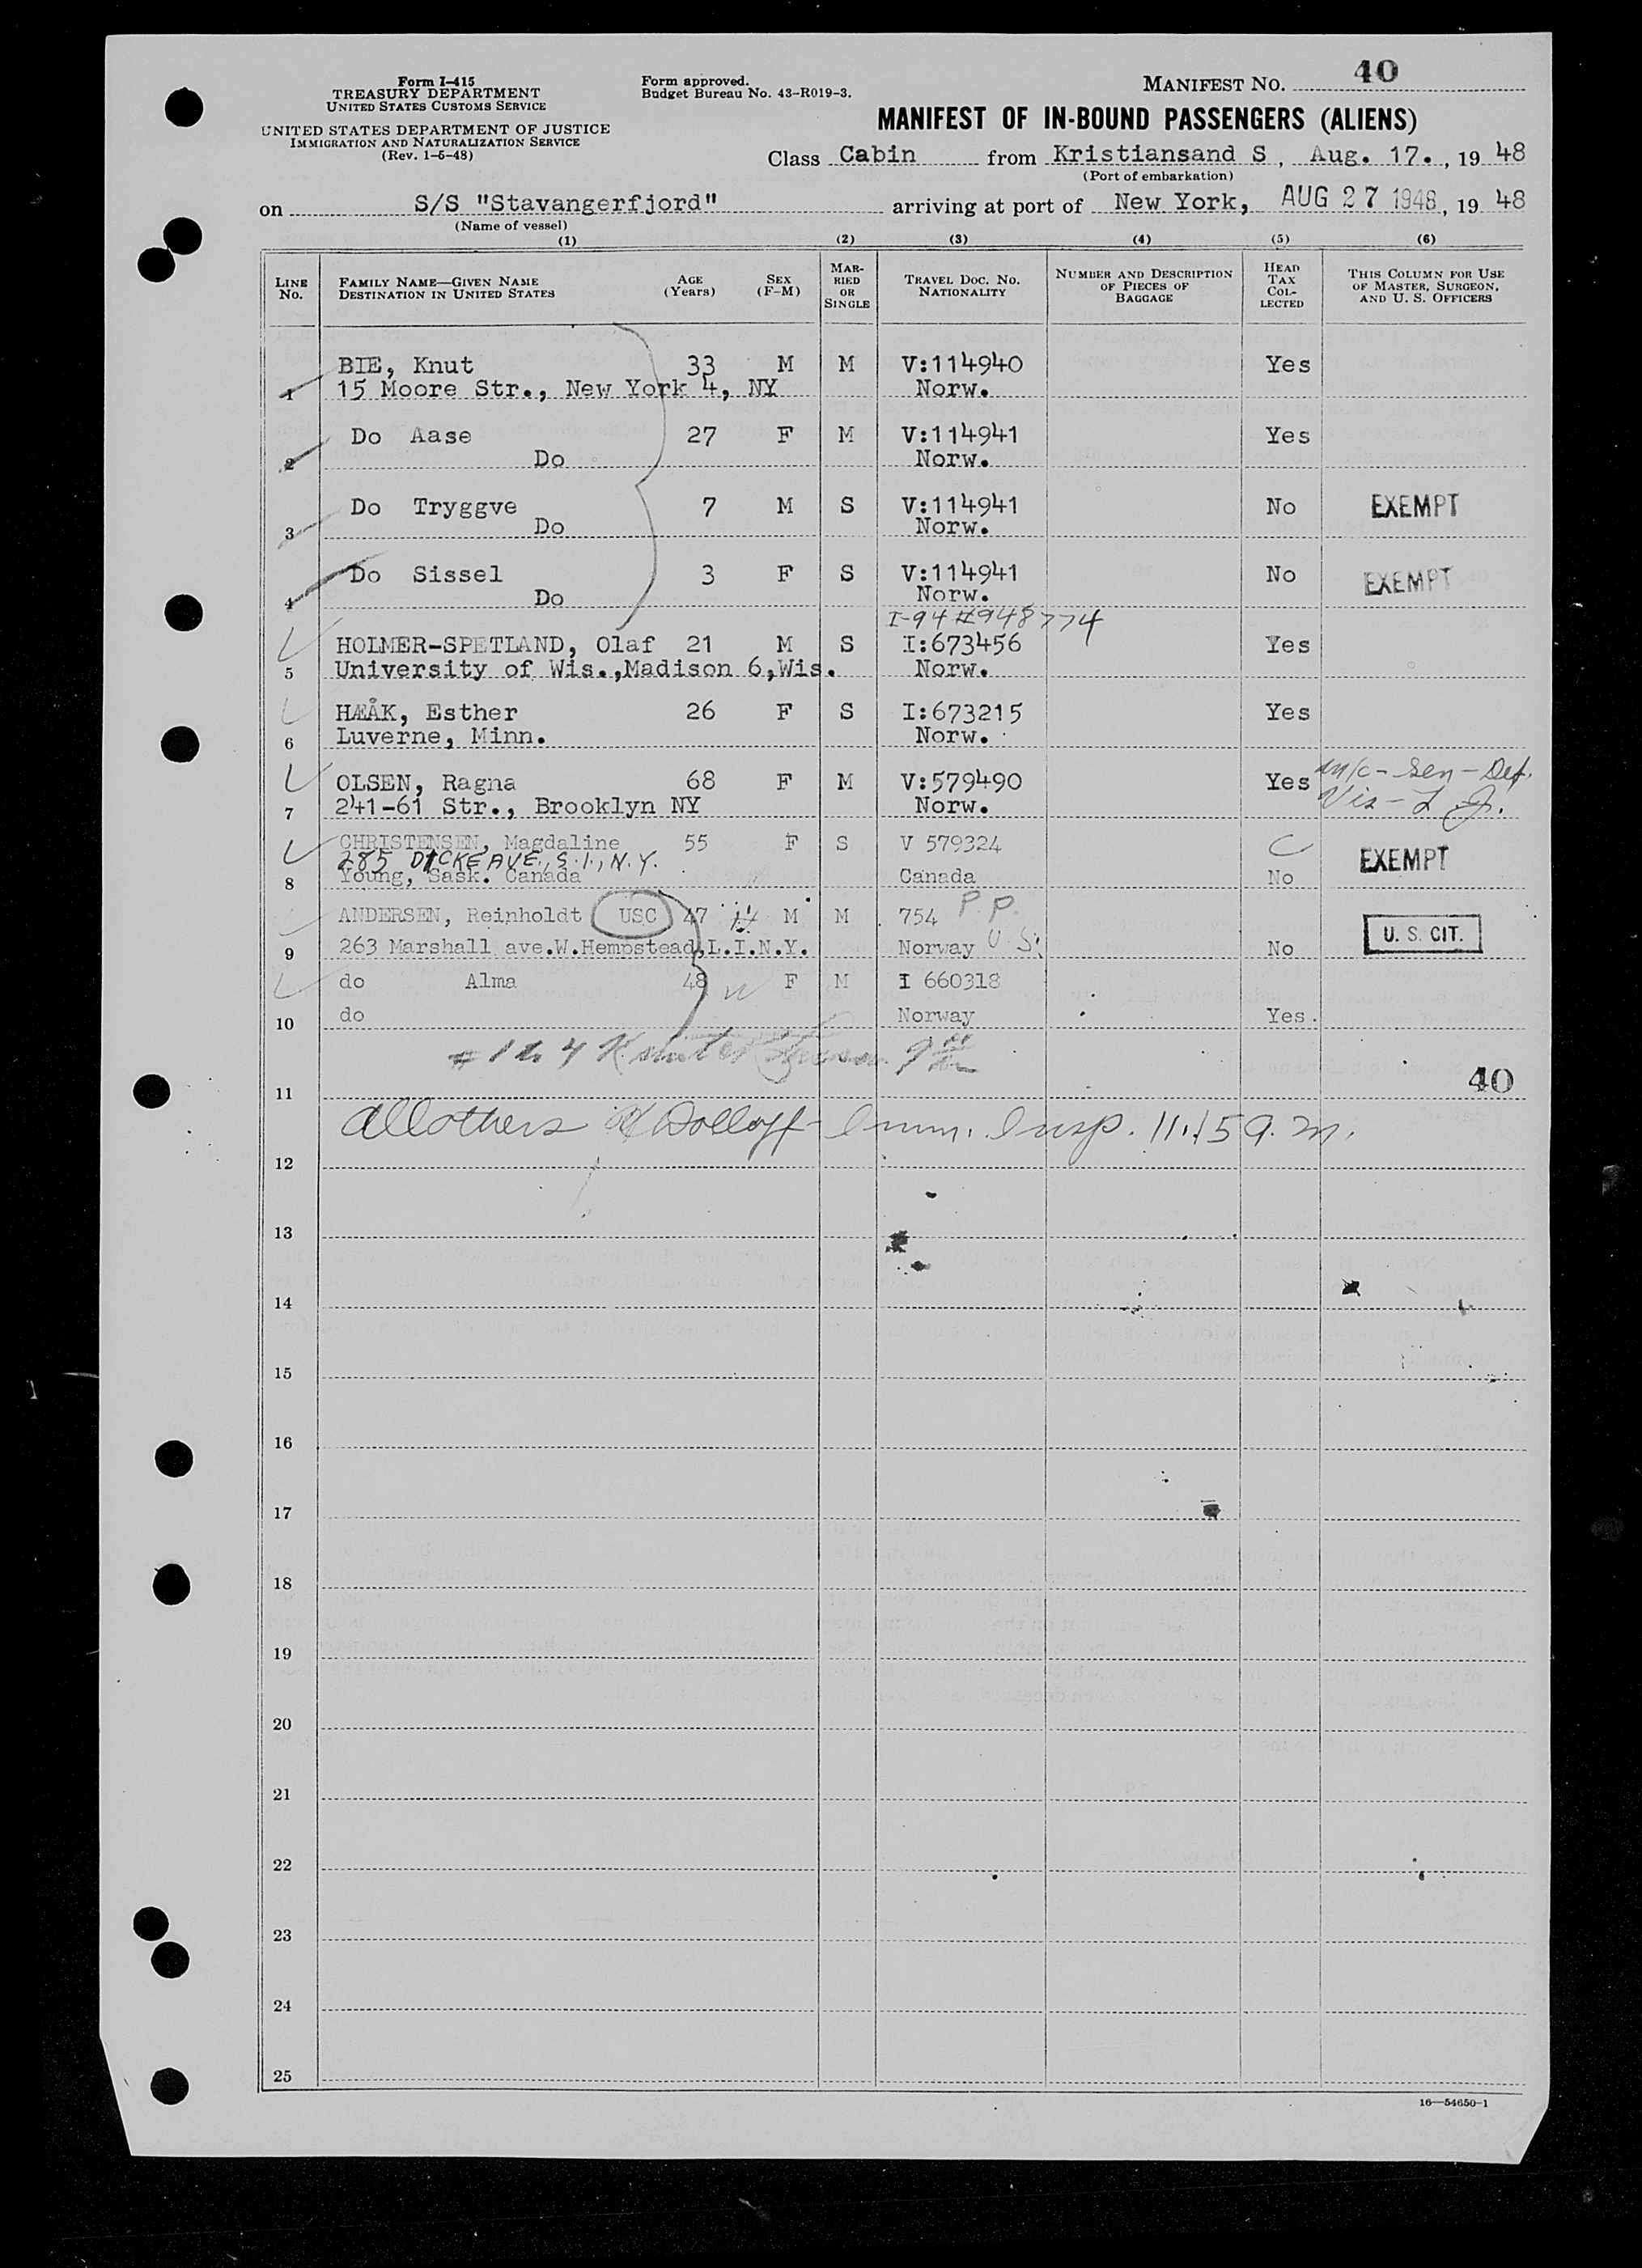 Form I-415
TREASURY DEPARTMENT
UNITED STATES CUSTOMS SERVICE
UNITED STATES DEPARTMENT OF JUSTICE
IMMIGRATION AND NATURALIZATION SERVICE
(Rev. 1-5-48)
Form approved.
Budget Bureau No. 43-R019-3.
MANIFEST NO. 40
MANIFEST OF IN-BOUND PASSENGERS (ALIENS)
Class Cabin from Kristiansand S, Aug. 17., 19 48
(Port of embarkation)
on S/S "Stavangerfjord" arriving at port of New York, AUG 27 1948, 19 48
(Name of vessel)
(1) (2) (3) (4) (5) (6)
LINE No. FAMILY NAME—GIVEN NAME DESTINATION IN UNITED STATES AGE (Years) SEX (F-M) MARRIED OR SINGLE TRAVEL DOC. NO. NATIONALITY NUMBER AND DESCRIPTION OF PIECES OF BAGGAGE HEAD TAX COLLECTED THIS COLUMN FOR USE OF MASTER, SURGEON, AND U. S. OFFICERS
BIE, Knut 33 M M V:114940 Yes
1 15 Moore Str., New York 4, NY Norw.
Do Aase 27 F M V:114941 Yes
2 Do Norw.
Do Tryggve 7 M S V:114941 No EXEMPT
3 Do Norw.
Do Sissel 3 F S V:114941 No EXEMPT
4 Do Norw.
I-94 #948774
HOLMER-SPETLAND, Olaf 21 M S I:673456 Yes
5 University of Wis.,Madison 6,Wis. Norw.
HÆÅK, Esther 26 F S I:673215 Yes
6 Luverne, Minn. Norw.
OLSEN, Ragna 68 F M V:579490 Yes m/c - Sen - Def.
7 241-61 Str., Brooklyn NY Norw. Vis -
CHRISTENSEN, Magdaline 55 F S V 579324 C EXEMPT
285 DICKE AVE., S.I., N.Y.
8 Young, Sask. Canada Canada No
ANDERSEN, Reinholdt USC 47 M M 754 P.P. U. S. CIT.
9 263 Marshall ave.W.Hempstead,L.I.N.Y. Norway U S. No
do Alma 48 F M I 660318
10 do Norway Yes.
# 1 to 4
11 40
All others Dolloff - Imm. Insp. 11.15 a.m.
12
13
14
15
16
17
18
19
20
21
22
23
24
25
16—54650-1